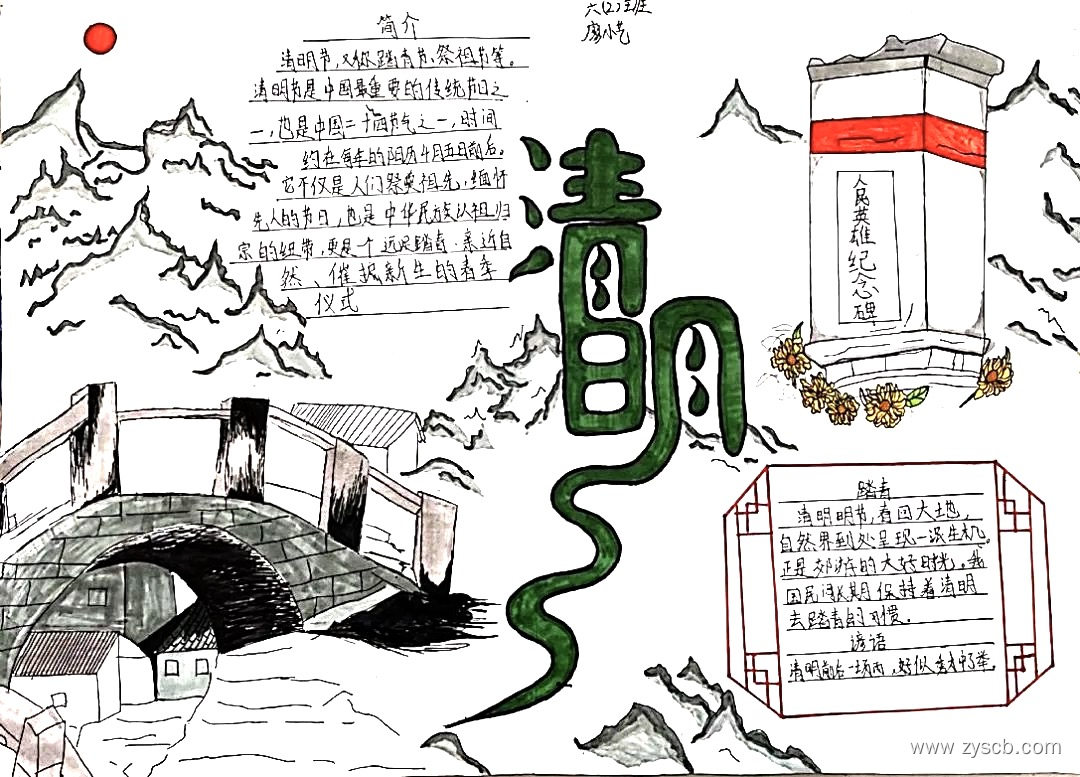 六(2)班
廖小艺
简介
清明节,又你踏青节、祭祖节等。
清明节是中国最重要的传统节日之
一,也是中国二十四节气之一,时间
约在每年的阳历4月五日前后。
它不仅是人们祭奠祖先,缅怀
先人的节日,也是中华民族认祖归
宗的纽带,更是一个远足踏青、亲近自
然、催护新生的春季
仪式
清明
人民英雄纪念碑
踏青
清明明节,春回大地,
自然界到处呈现一派生机,
正是郊游的大好时光。我
国民间长期保持着清明
去踏青的习惯。
谚语
清明前后一场雨,好似秀才中举。
www.zyscb.com